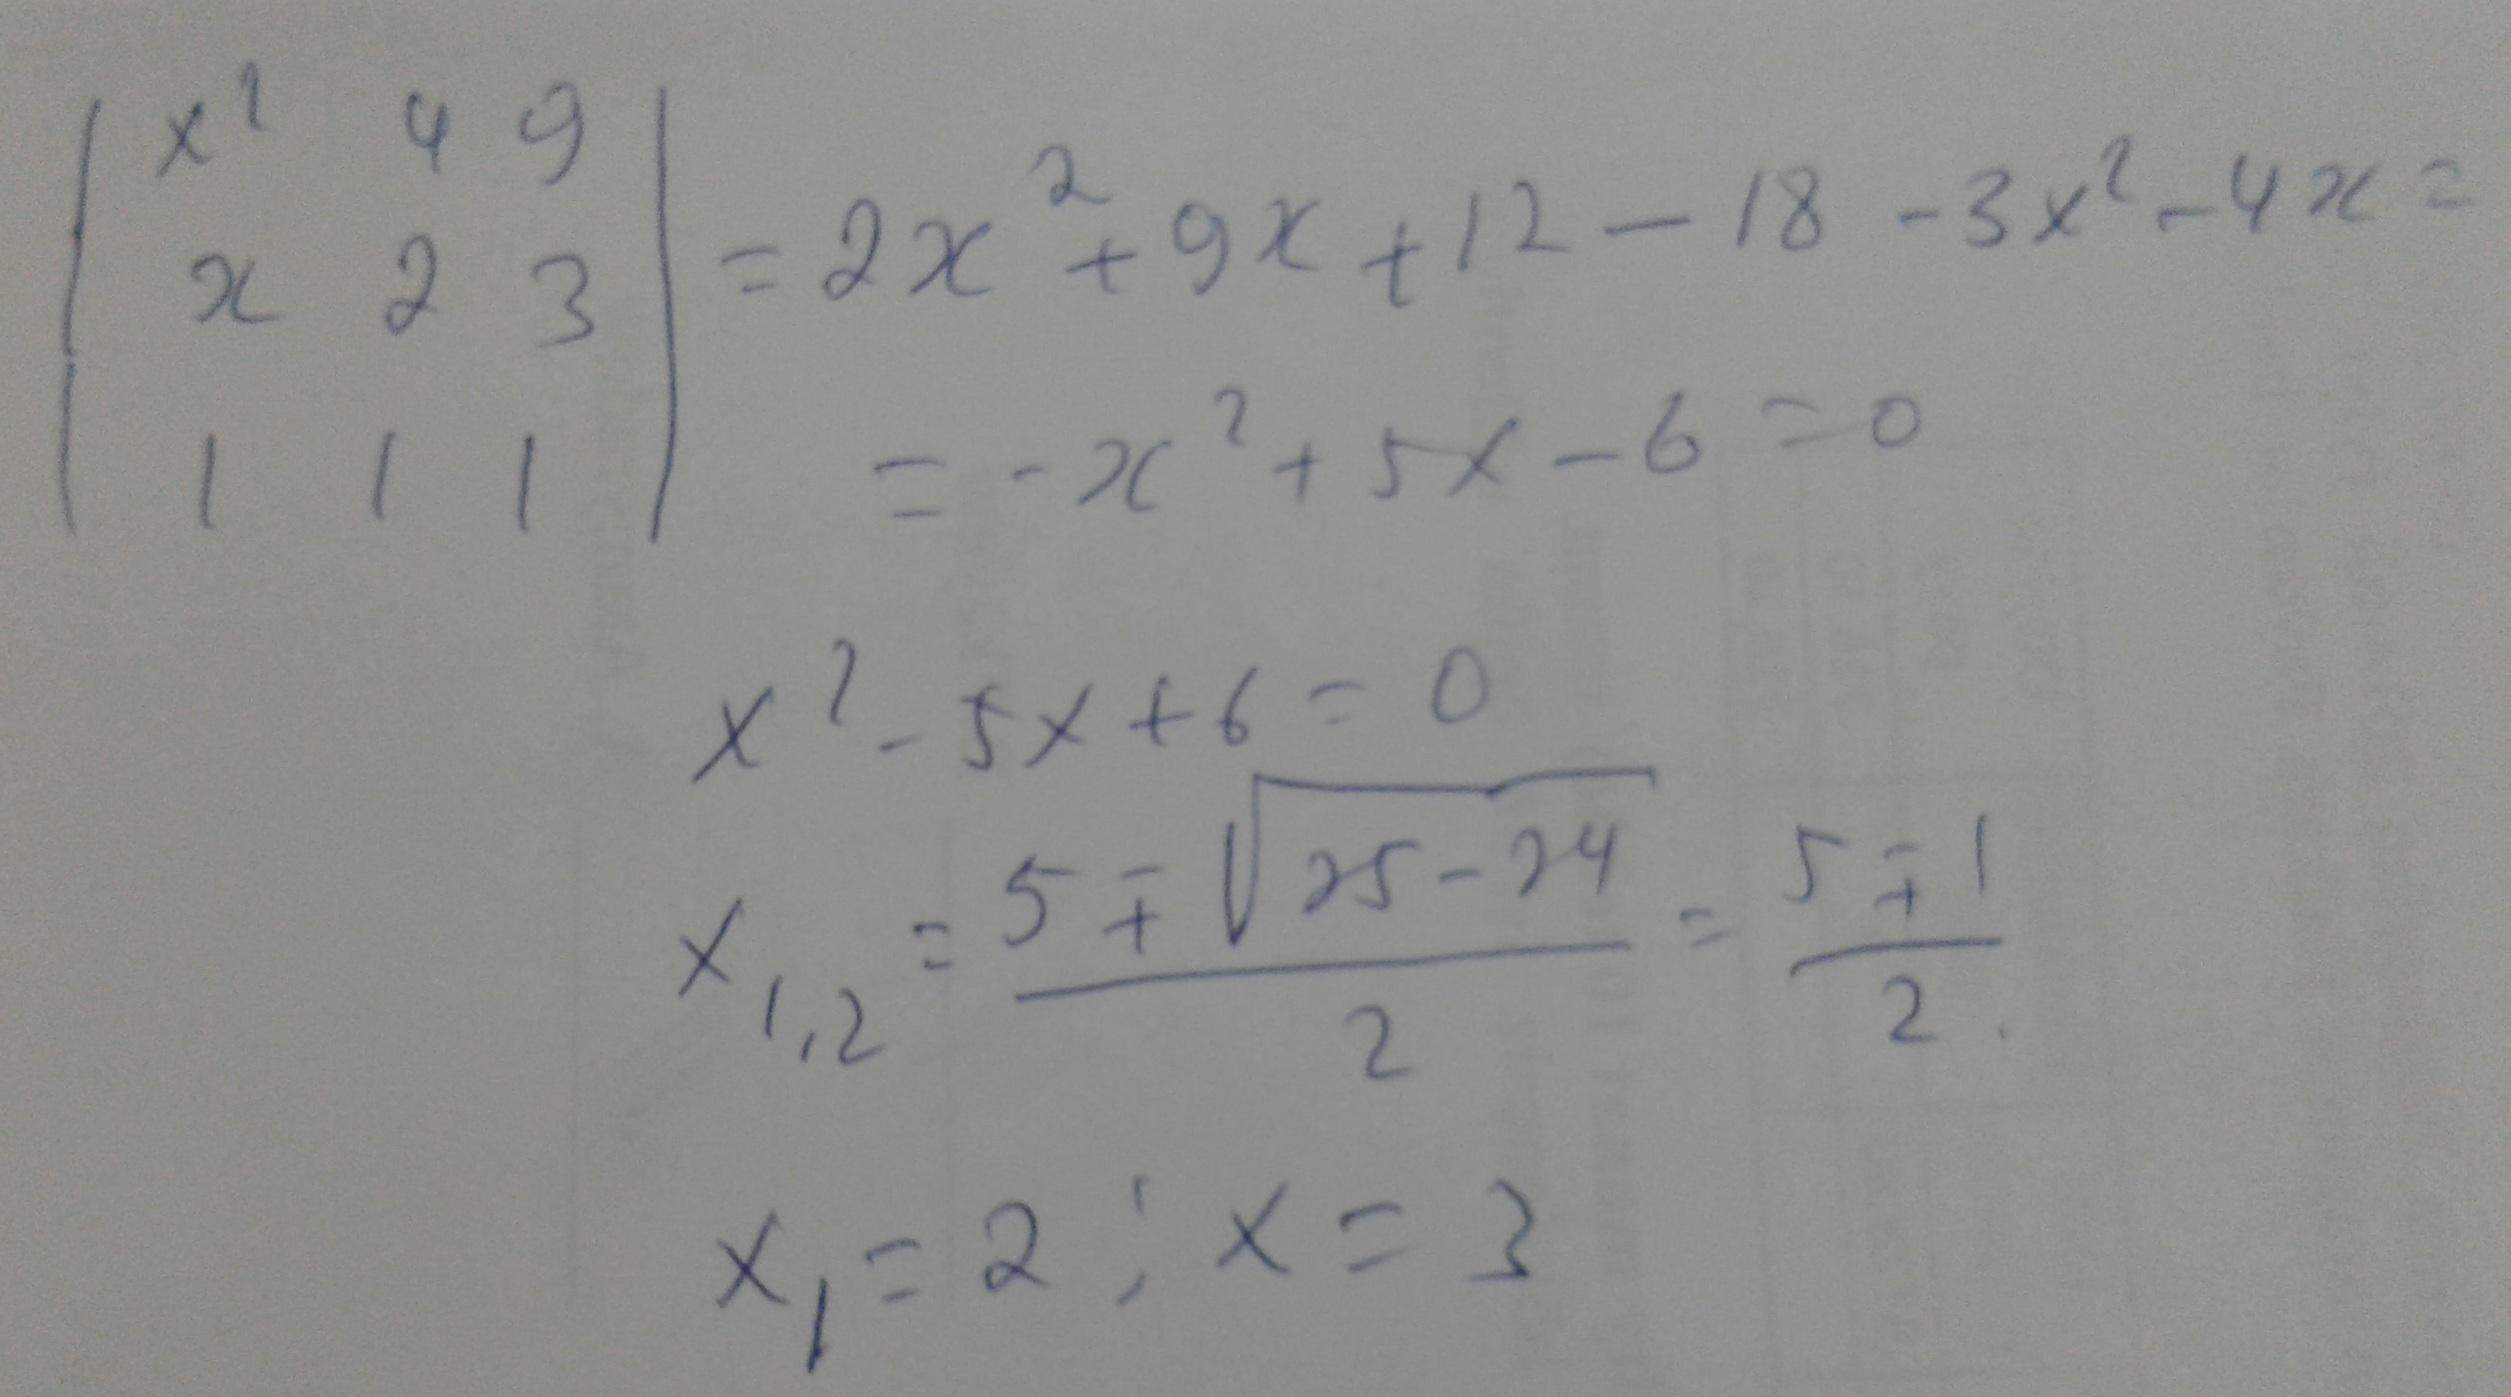 | x² 4 9 |
| x 2 3 | = 2x² + 9x + 12 - 18 - 3x² - 4x =
| 1 1 1 | = -x² + 5x - 6 = 0
x² - 5x + 6 = 0
x₁,₂ = (5 ∓ √(25 - 24)) / 2 = (5 ∓ 1) / 2
x₁ = 2 ; x = 3